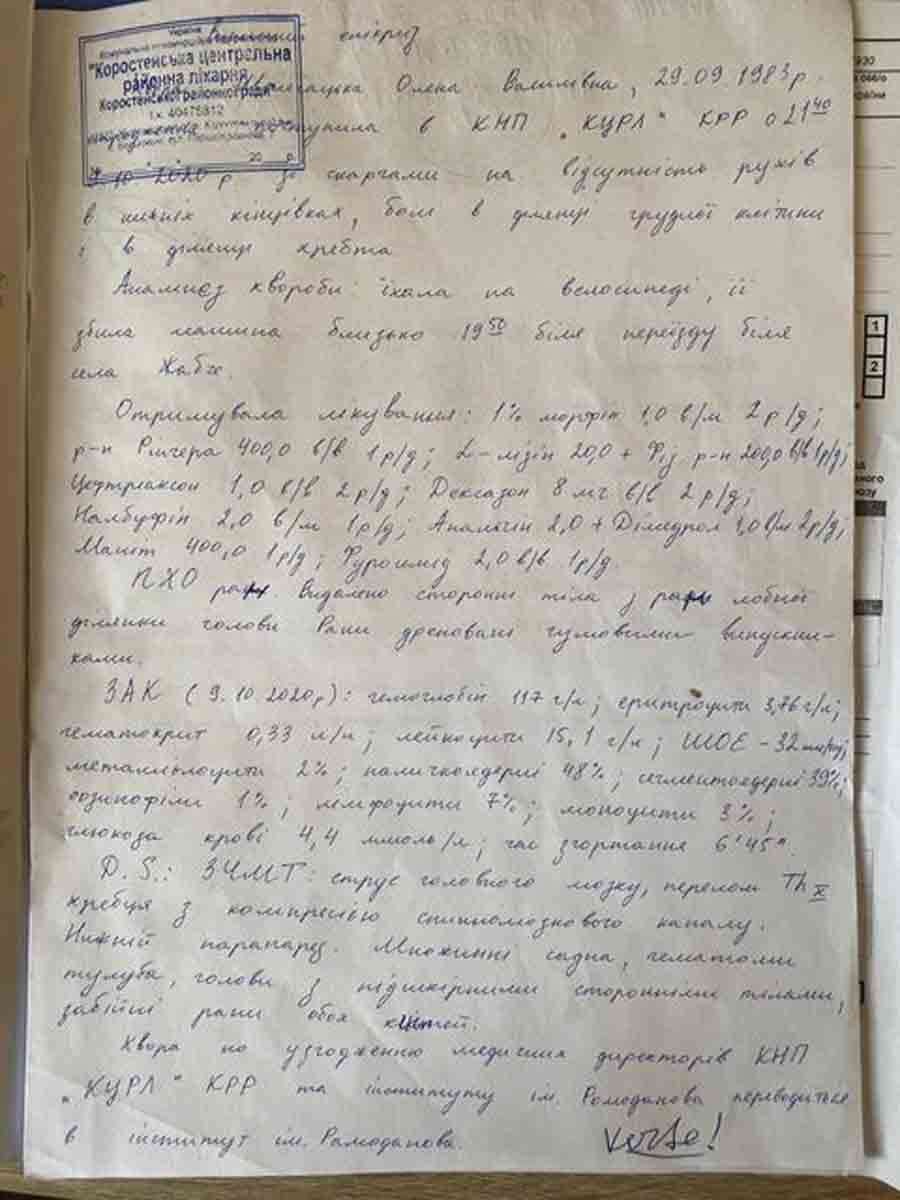 Україна
"Коростенська центральна
районна лікарня
Коростенської районної ради"
епікриз
Олена Василівна, 29.09.1983 р.
поступила в КНП "КЦРЛ" КРР о 21 40
10 2020 р зі скаргами на відсутність рухів
в нижніх кінцівках, болі в ділянці грудної клітини
і в ділянці хребта
Анамнез хвороби: їхала на велосипеді, її
збила машина близько 19 50 біля переїзду біля
села Жабче.
Отримувала лікування: 1% морфін 1,0 в/м 2 р/д;
р-н Рінгера 400,0 в/в 1 р/д; L-лізін 20,0 + Фіз. р-н 200,0 в/в 1 р/д;
Цефтріаксон 1,0 в/в 2 р/д; Дексазон 8 мг в/в 2 р/д;
Налбуфін 2,0 в/м 1 р/д; Анальгін 2,0 + Дімедрол 1,0 в/м 2 р/д;
Маніт 400,0 1 р/д; Фуросемід 2,0 в/в 1 р/д.
ПХО ран. Видалено сторонні тіла з рани лобної
ділянки голови Рани дреновані гумовими випускни-
ками.
ЗАК (9.10.2020р): гемоглобін 117 г/л; еритроцити 3,76 г/л;
гематокрит 0,33 л/л; лейкоцити 15,1 г/л; ШОЕ - 32 мм/год;
метамієлоцити 2%; паличкоядерні 48%; сегментоядерні 39%;
еозинофіли 1%; лімфоцити 7%; моноцити 3%;
глюкоза крові 4,4 ммоль/л; час згортання 6'45".
D.S.: ЗЧМТ: струс головного мозку, перелом Th X
хребця з компресією спинномозкового каналу.
Нижній парапарез. Множинні садна, гематоми
тулуба, голови з підшкірними сторонніми тілами,
забійні рани обох кистей.
Хвора по узгодженню медичних директорів КНП
"КЦРЛ" КРР та інституту ім. Ромоданова переводиться
в інститут ім. Рамоданова. Verte!
1
2